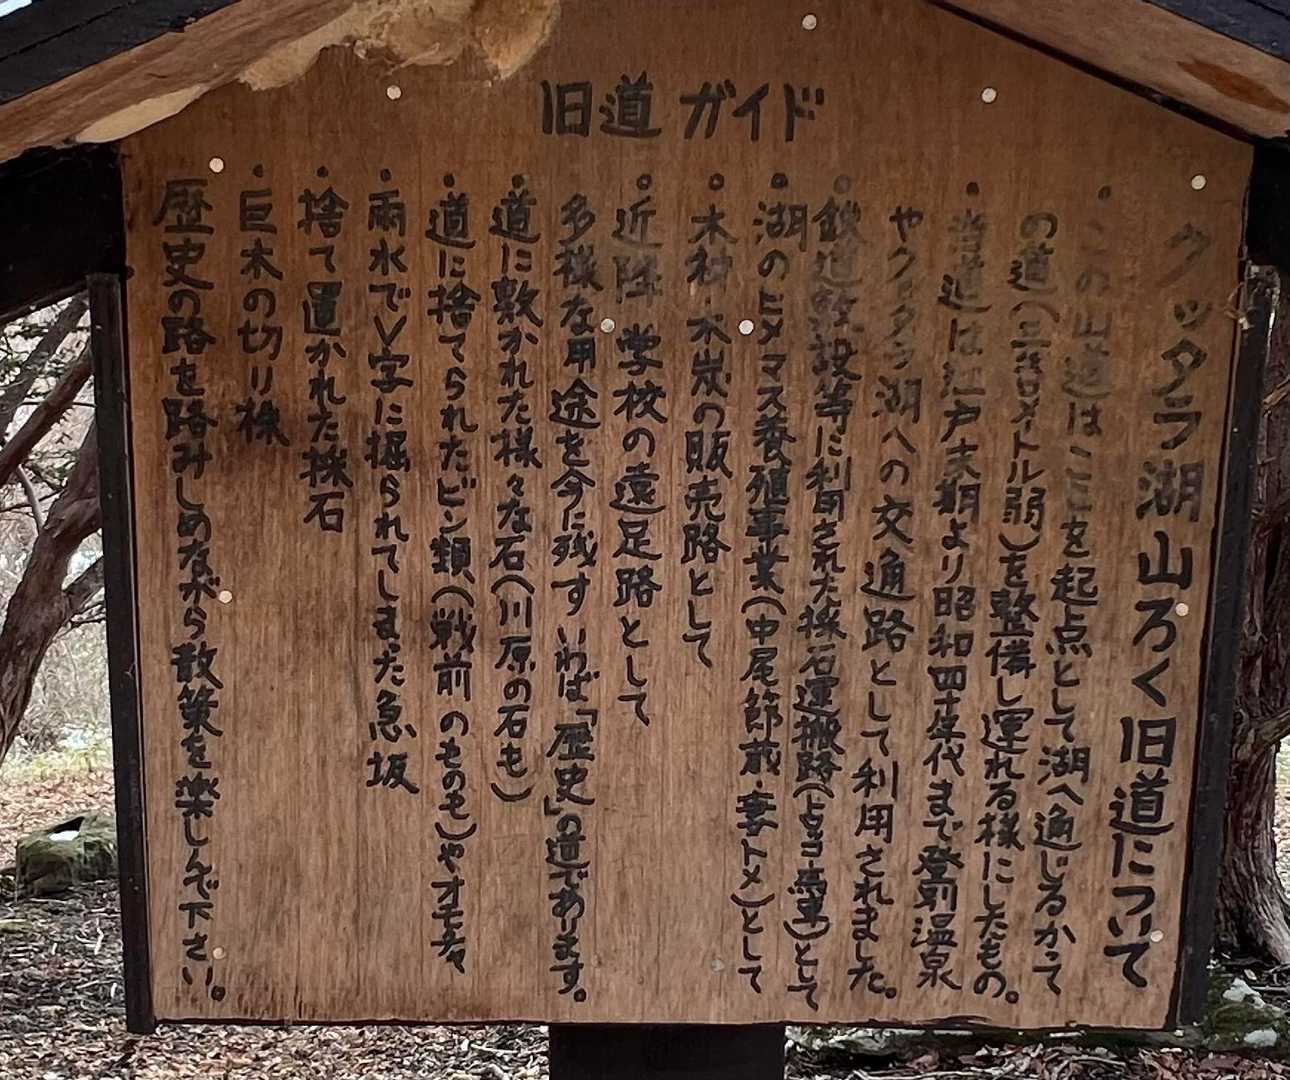 旧道ガイド
クッタラ湖山ろく旧道について
・この山道はここを起点として湖へ通じるかつて
の道(三キロメートル弱)を整備し通れる様にしたもの。
・当道は江戸末期より昭和四十年代まで登別温泉
やクッタラ湖への交通路として利用されました。
・鉄道敷設等に利用された採石運搬路(馬車)として
・湖のヒメマス養殖事業(中尾節蔵・妻トメ)として
・木材・木炭の販売路として
・近隣 学校の遠足路として
多様な用途を今に残す いわば「歴史」の道であります。
・道に敷かれた様々な石(川原の石も)
・道に捨てられたビン類(戦前のものも)やオモチャ
・雨水でV字に掘られてしまった急坂
・捨て置かれた採石
・巨木の切り株
歴史の路を踏みしめながら散策を楽しんで下さい。